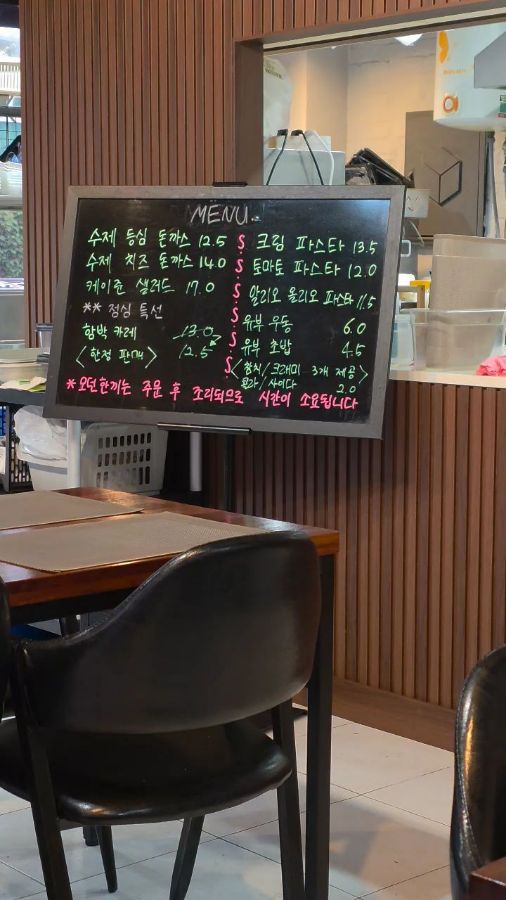 MENU
수제 등심 돈까스 12.5
수제 치즈 돈까스 14.0
케이준 샐러드 17.0
** 점심 특선
함박 카레 13.0
<한정 판매> 12.5
크림 파스타 13.5
토마토 파스타 12.0
알리오 올리오 파스타 11.5
유부 우동 6.0
유부 초밥 4.5
<참치/크래미 3개 제공>
콜라/사이다 2.0
*오던한끼는 주문 후 조리되므로 시간이 소요됩니다